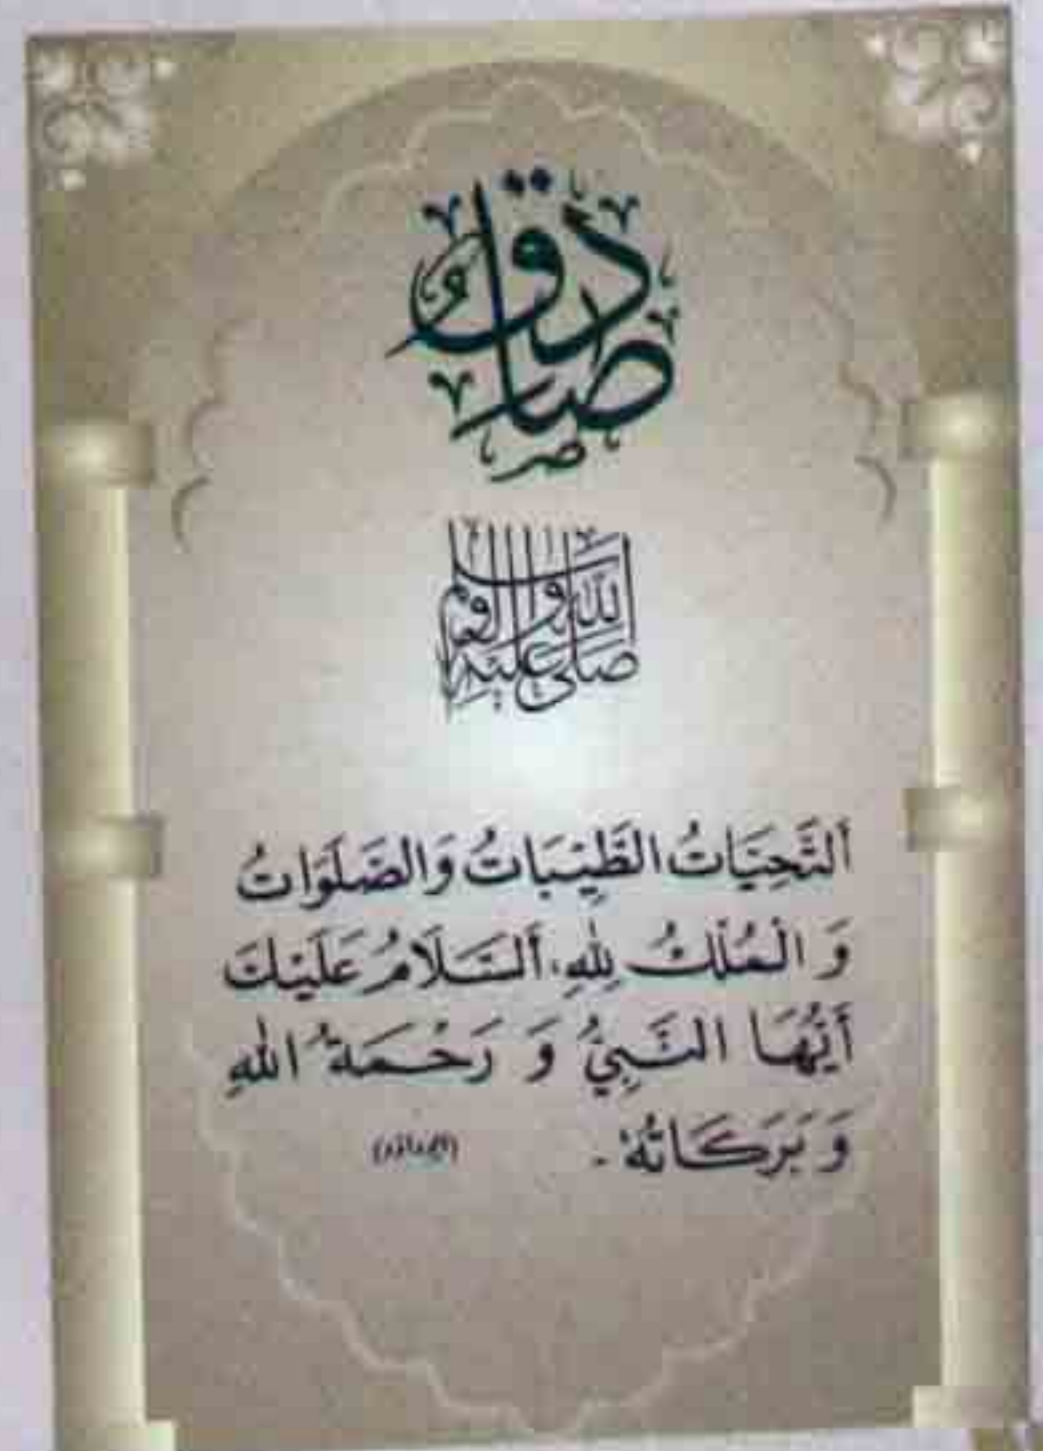 صَادِقٌ
صلى الله عليه وآله وسلم
أَلتَّحِيَّاتُ الطَّيِّبَاتُ وَالصَّلَوَاتُ
وَ الْمُلْكُ لِلهِ، أَلسَّلَامُ عَلَيْكَ
أَيُّهَا النَّبِيُّ وَ رَحْمَةُ اللهِ
وَ بَرَكَاتُهُ - (ابوداؤد)